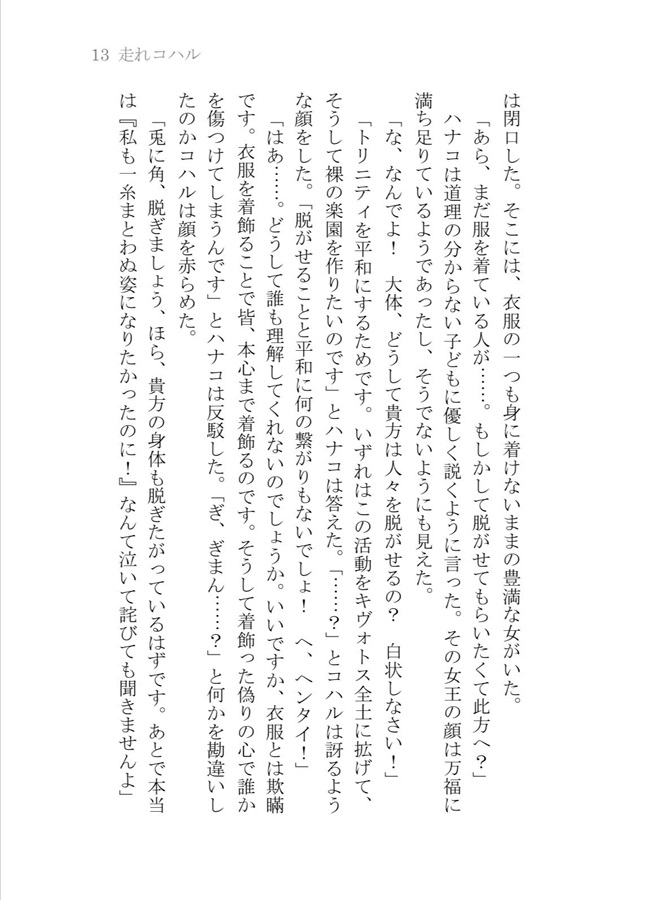 13 走れコハル
は閉口した。そこには、衣服の一つも身に着けないままの豊満な女がいた。
「あら、まだ服を着ている人が……。もしかして脱がせてもらいたくて此方へ？」
ハナコは道理の分からない子どもに優しく説くように言った。その女王の顔は万福に
満ち足りているようであったし、そうでないようにも見えた。
「な、なんでよ！　大体、どうして貴方は人々を脱がせるの？　白状しなさい！」
「トリニティを平和にするためです。いずれはこの活動をキヴォトス全土に拡げて、
そうして裸の楽園を作りたいのです」とハナコは答えた。「……？」とコハルは訝るよう
な顔をした。「脱がせることと平和に何の繋がりもないでしょ！　へ、ヘンタイ！」
「はあ……。どうして誰も理解してくれないのでしょうか。いいですか、衣服とは欺瞞
です。衣服を着飾ることで皆、本心まで着飾るのです。そうして着飾った偽りの心で誰か
を傷つけてしまうんです」とハナコは反駁した。「ぎ、ぎまん……？」と何かを勘違いし
たのかコハルは顔を赤らめた。
「兎に角、脱ぎましょう、ほら、貴方の身体も脱ぎたがっているはずです。あとで本当
は『私も一糸まとわぬ姿になりたかったのに！』なんて泣いて詫びても聞きませんよ」